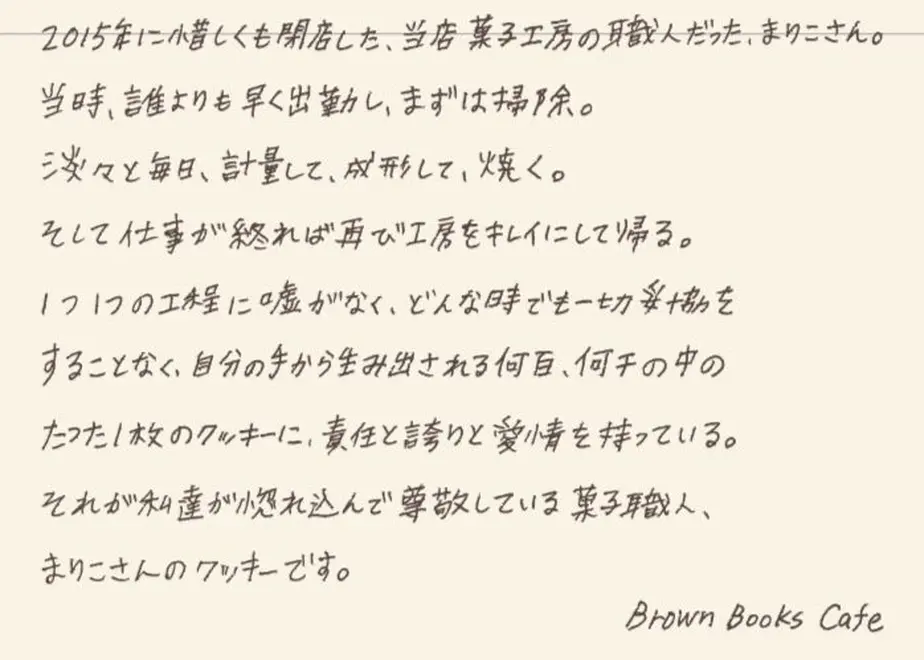 2015年に惜しくも閉店した、当店菓子工房の職人だった、まりこさん。
当時、誰よりも早く出勤し、まずは掃除。
淡々と毎日、計量して、成形して、焼く。
そして仕事が終れば再び工房をキレイにして帰る。
1つ1つの工程に嘘がなく、どんな時でも一切妥協を
することなく、自分の手から生み出される何百、何千の中の
たった1枚のクッキーに、責任と誇りと愛情を持っている。
それが私達が惚れ込んで尊敬している菓子職人、
まりこさんのクッキーです。
Brown Books Cafe